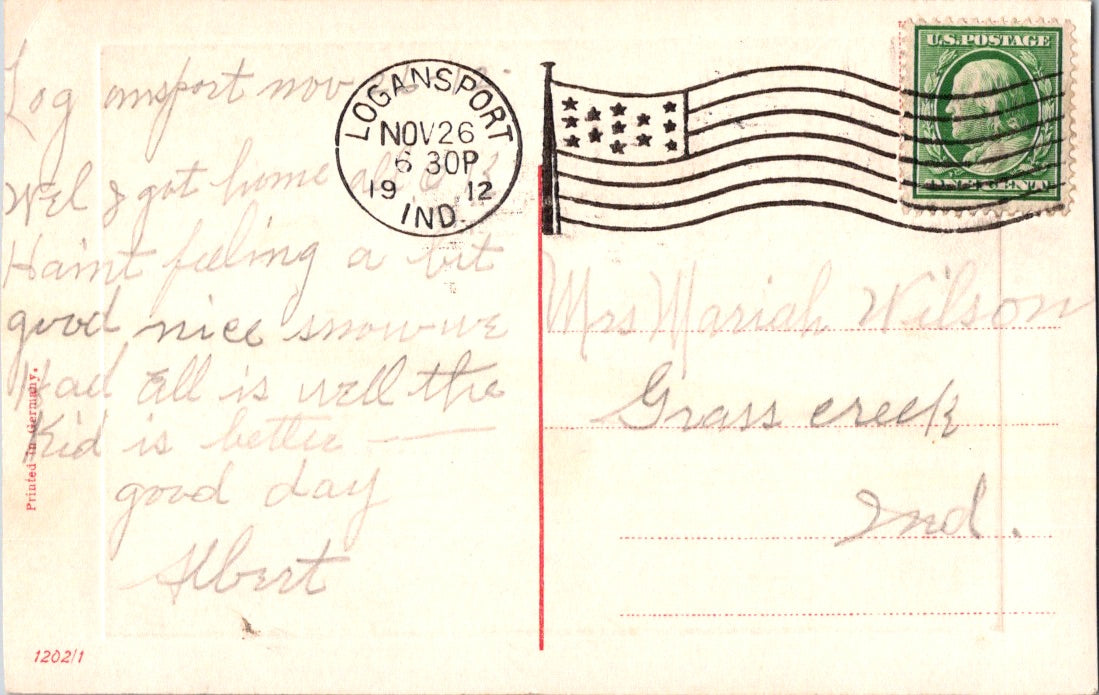 Logansport nov
LOGANSPORT
NOV 26
6 30P
19 12
IND.
U.S. POSTAGE
ONE CENT
Wel I got home all
Haint feeling a bit
good nice snow we
Had all is well the
Kid is better —
good day
Albert
Mrs Mariah Wilson
Grass creek
Ind.
Printed in Germany.
1202/1